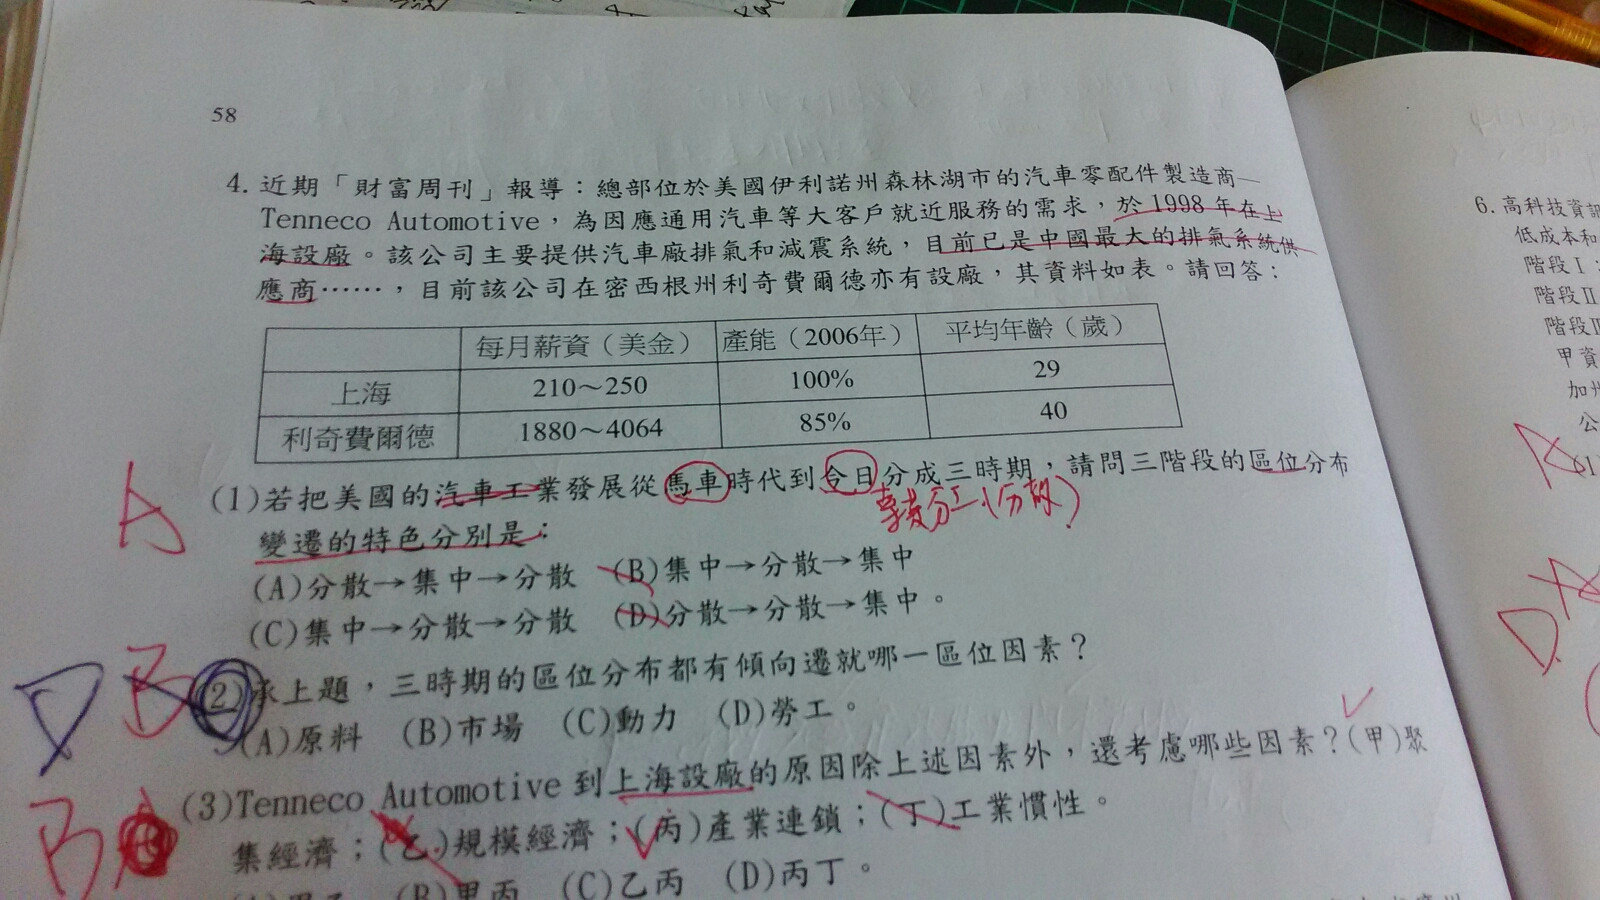 58
4. 近期「財富周刊」報導：總部位於美國伊利諾州森林湖市的汽車零配件製造商—
Tenneco Automotive，為因應通用汽車等大客戶就近服務的需求，於1998年在上
海設廠。該公司主要提供汽車廠排氣和減震系統，目前已是中國最大的排氣系統供
應商……，目前該公司在密西根州利奇費爾德亦有設廠，其資料如表。請回答：
每月薪資（美金） 產能（2006年） 平均年齡（歲）
上海 210～250 100% 29
利奇費爾德 1880～4064 85% 40
A (1)若把美國的汽車工業發展從馬車時代到今日分成三時期，請問三階段的區位分布
分工(分散)
變遷的特色分別是：
(A)分散→集中→分散 (B)集中→分散→集中
(C)集中→分散→分散 (D)分散→分散→集中。
D B (2)承上題，三時期的區位分布都有傾向遷就哪一區位因素？
(A)原料 (B)市場 (C)動力 (D)勞工。
B (3)Tenneco Automotive到上海設廠的原因除上述因素外，還考慮哪些因素？(甲)聚
集經濟；(乙)規模經濟；(丙)產業連鎖；(丁)工業慣性。
(A)甲乙 (B)甲丙 (C)乙丙 (D)丙丁。
6. 高科技資訊
低成本和
階段Ⅰ：
階段Ⅱ
階段Ⅲ
甲資
加州
公
A (1)
D.